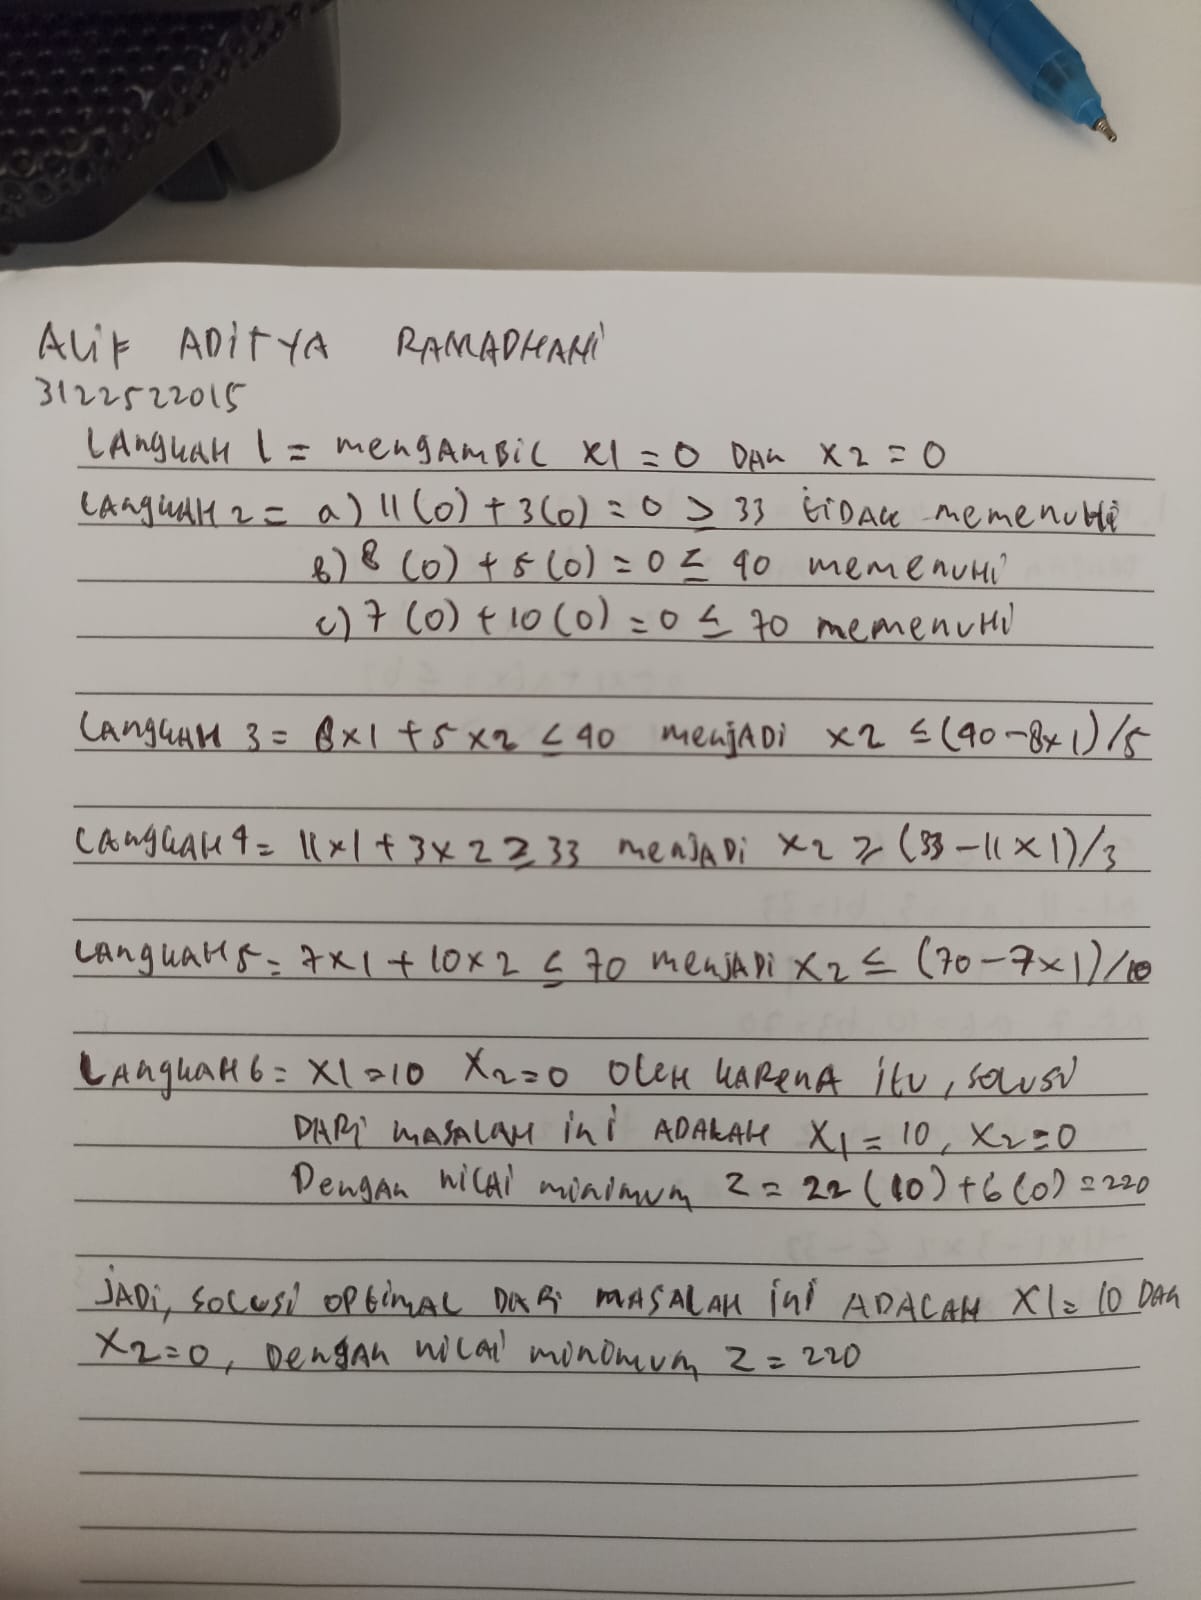 ALIF ADITYA RAMADHANI
3122522015
LANGKAH 1 = mengAmBiL x1 = 0 DAN x2 = 0
LANGKAH 2 = a) 11 (0) + 3 (0) = 0 ≥ 33 tiDAK memenuHi
b) 8 (0) + 5 (0) = 0 ≤ 40 memenuHi
c) 7 (0) + 10 (0) = 0 ≤ 70 memenuHi
LANGKAH 3 = 8x1 + 5x2 ≤ 40 menjADi x2 ≤ (40 - 8x1)/5
LANGKAH 4 = 11x1 + 3x2 ≥ 33 menjADi x2 ≥ (33 - 11x1)/3
LANGKAH 5 = 7x1 + 10x2 ≤ 70 menjADi x2 ≤ (70 - 7x1)/10
LANGKAH 6 = x1 = 10 x2 = 0 OLEH KARENA itu, SOLUSi
DARi mASALAH ini ADALAH x1 = 10, x2 = 0
DengAn niLAi minimum Z = 22 (10) + 6 (0) = 220
JADi, SOLUSi OPtimAL DARi mASALAH ini ADALAH x1 = 10 DAn
x2 = 0, DengAn niLAi minimum Z = 220